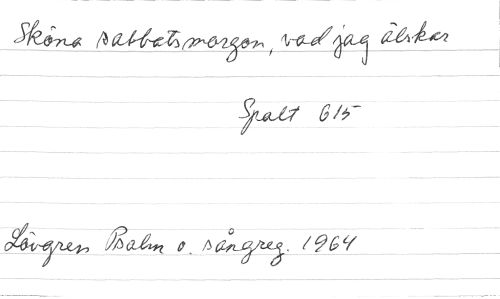 Sköna sabbatsmorgon, vad jag älskar
Spalt 615
Lövgren Psalm o. sångreg. 1964